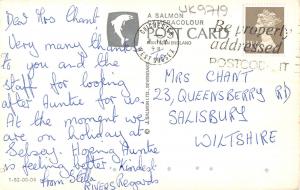 Dear Mrs Chant
Very many thanks
to you and the
staff for looking
after Auntie for us.
At the moment we
are on holiday at
Selsey. Hoping Auntie
is feeling better. Kindest
Regards
from Stella
RIVERS
1-52-00-04
A SALMON
CAMERACOLOUR
POST CARD
ENGLAND
UK9719
CHICHESTER
WEST SUSSEX
Be properly
addressed
POSTCODE IT
MRS CHANT
23, QUEENSBERRY RD
SALISBURY
WILTSHIRE